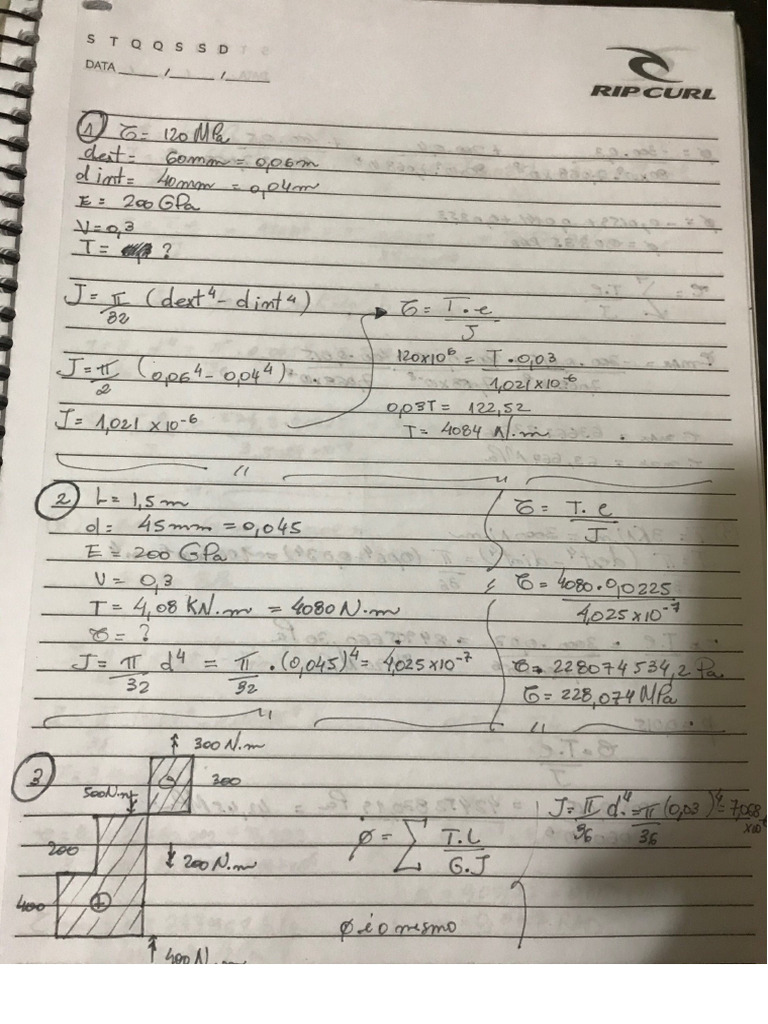 S T Q Q S S D
DATA ___/___/___
RIP CURL
1 σ = 120 MPa
dext = 60mm = 0,06m
dint = 40mm = 0,04m
E = 200 GPa
V = 0,3
T = ?
J = π/32 (dext⁴ - dint⁴)
J = π/2 (0,06⁴ - 0,04⁴)
J = 1,021 x10⁻⁶
σ = T.e/J
120x10⁶ = T.0,03/1,021x10⁻⁶
0,03T = 122,52
T = 4084 N.m
2 L = 1,5 m
d = 45mm = 0,045
E = 200 GPa
V = 0,3
T = 4,08 KN.m = 4080 N.m
σ = ?
J = π/32 d⁴ = π/32 .(0,045)⁴ = 4,025x10⁻⁷
σ = T.e/J
σ = 4080.0,0225/4,025x10⁻⁷
σ = 228074534,2 Pa
σ = 228,074 MPa
3
300 N.m
300
500N.m
200
200 N.m
400
+
400 N.m
ϕ = Σ T.L/G.J
ϕ é o mesmo
J = π/36 d⁴ = π/36 (0,03)⁴ = 7,068